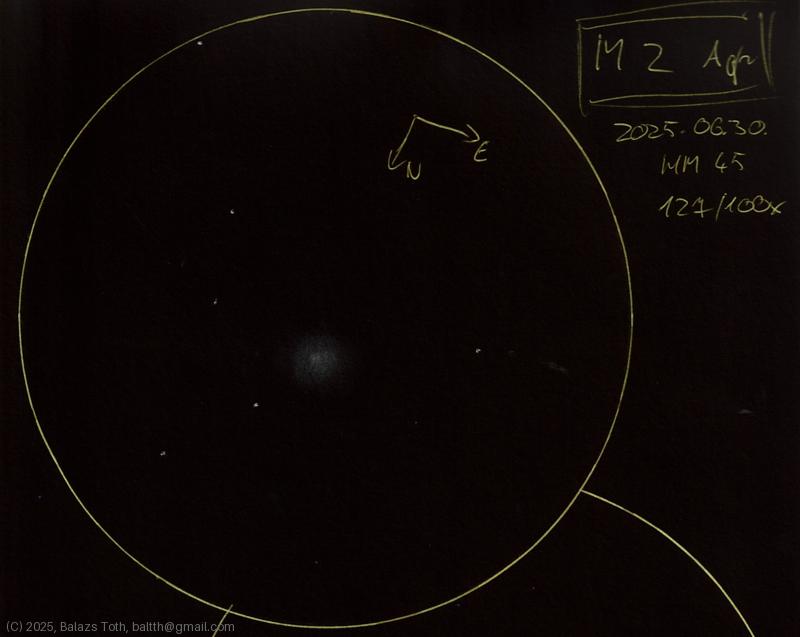 M 2 Aqr
2025.06.30.
MM 45
127/100x
N
E
(C) 2025, Balazs Toth, baltth@gmail.com